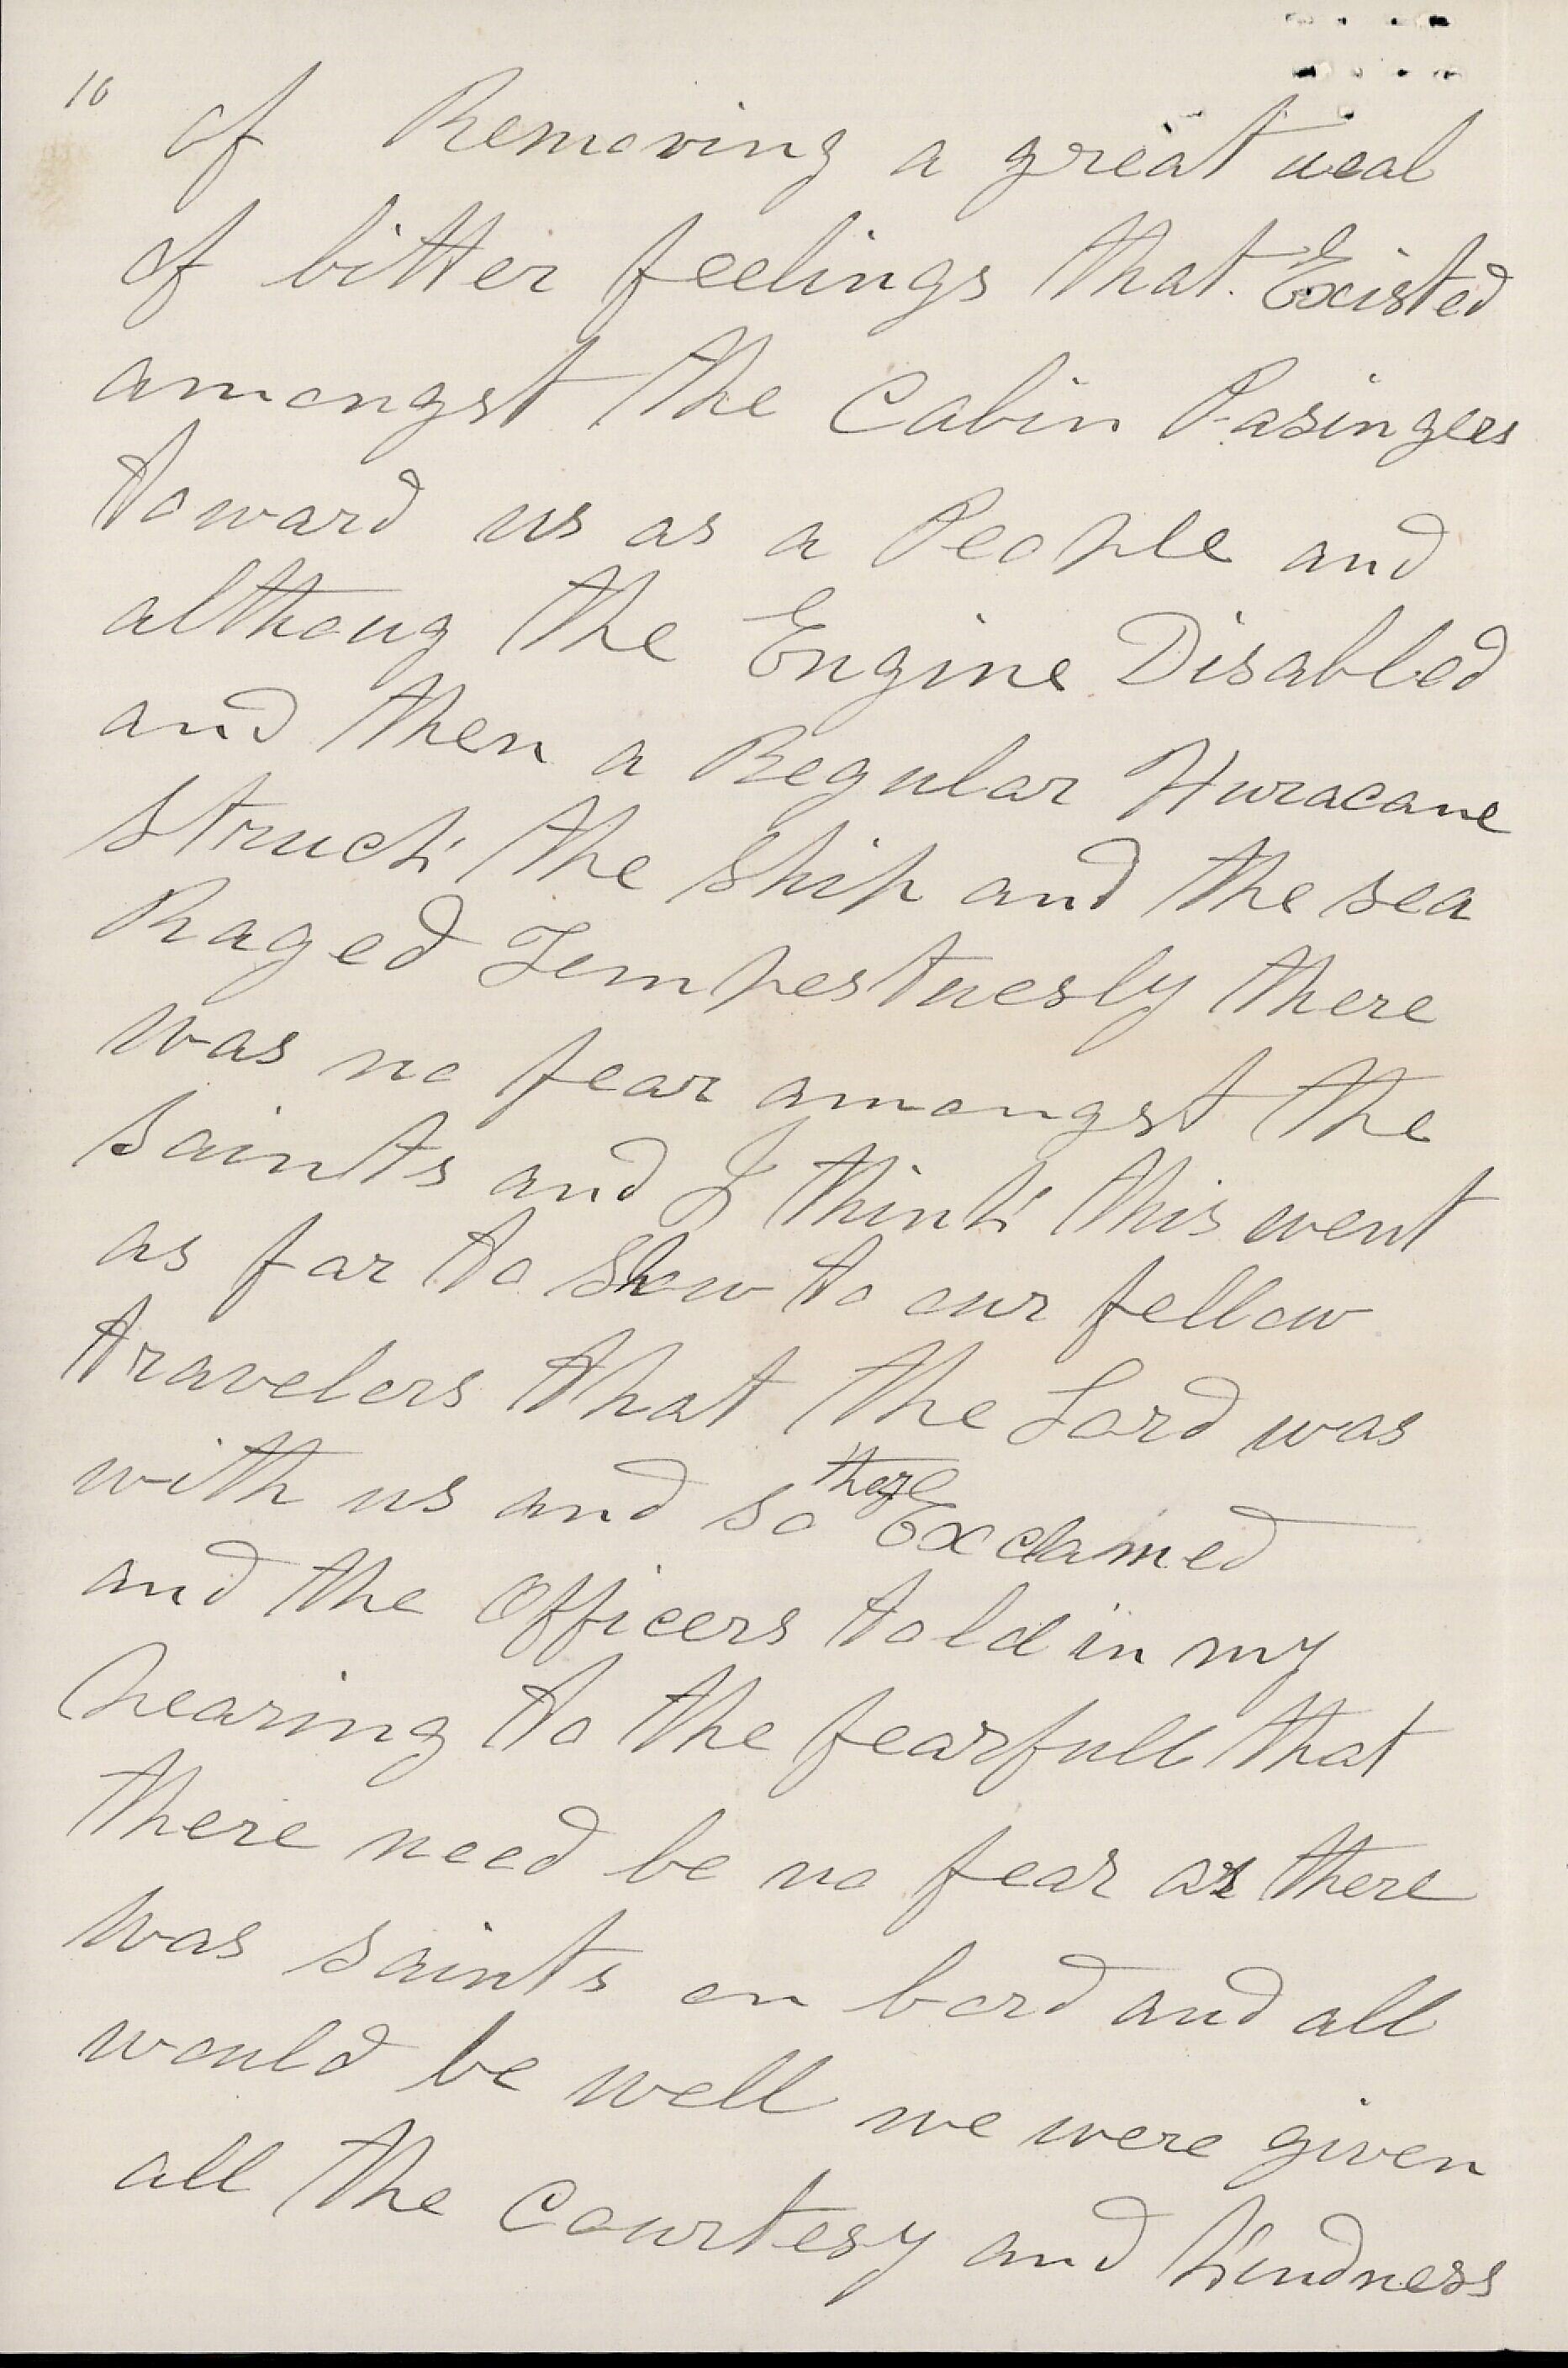 16
of Removing a great deal
of bitter feelings that Existed
amongst the Cabin Pasingers
toward us as a People and
althoug the Engine Disabled
and then a Regular Huracane
struck the ship and the sea
Raged Tempestuesly there
was no fear amongst the
saints and I think this went
as far to show to our fellow
travelers that the Lord was
with us and so they Exclamed
and the Officers told in my
hearing to the fearfull that
there need be no fear as there
was saints on bord and all
would be well we were given
all the Courtesy and kindness